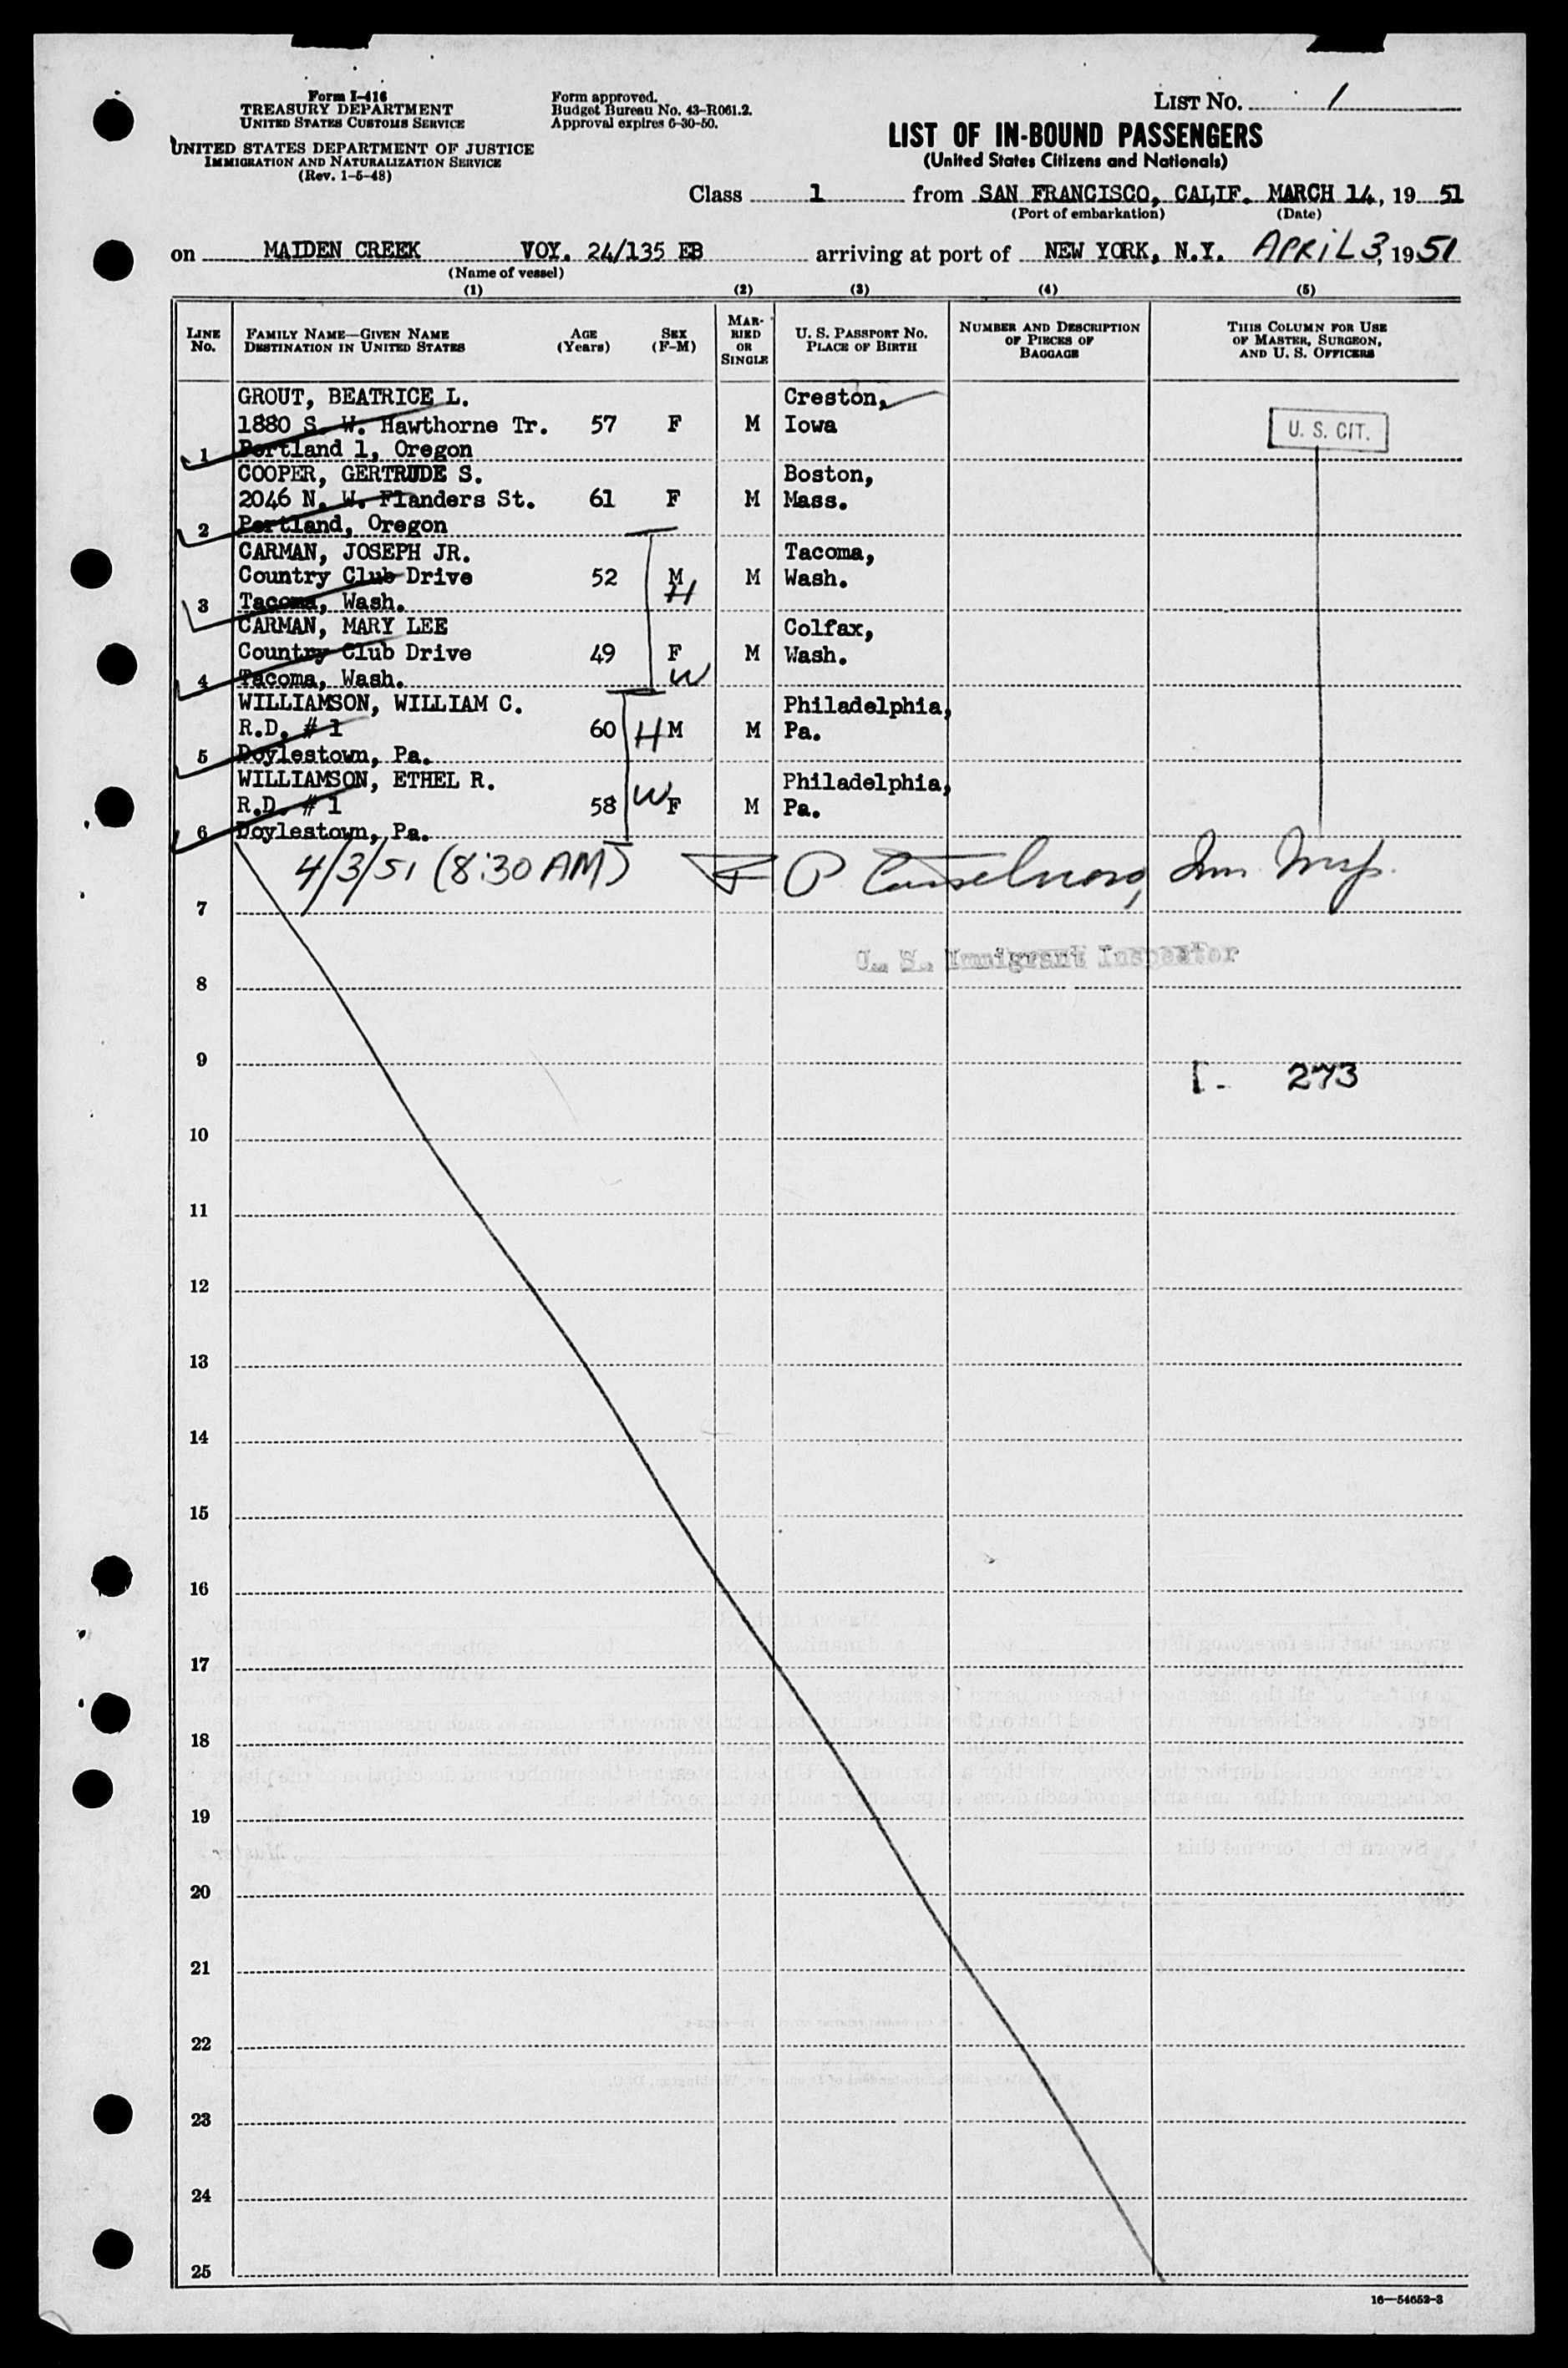 Form I-416
TREASURY DEPARTMENT
UNITED STATES CUSTOMS SERVICE
UNITED STATES DEPARTMENT OF JUSTICE
IMMIGRATION AND NATURALIZATION SERVICE
(Rev. 1-5-48)
Form approved.
Budget Bureau No. 43-R061.2.
Approval expires 6-30-50.
LIST NO. 1
LIST OF IN-BOUND PASSENGERS
(United States Citizens and Nationals)
Class 1 from SAN FRANCISCO, CALIF. MARCH 14, 1951
(Port of embarkation) (Date)
on MAIDEN CREEK VOY. 24/135 EB arriving at port of NEW YORK, N.Y. APRIL 3, 1951
(Name of vessel)
(1) (2) (3) (4) (5)
LINE No.
FAMILY NAME—GIVEN NAME
DESTINATION IN UNITED STATES
AGE (Years)
SEX (F-M)
MARRIED OR SINGLE
U. S. PASSPORT NO.
PLACE OF BIRTH
NUMBER AND DESCRIPTION OF PIECES OF BAGGAGE
THIS COLUMN FOR USE OF MASTER, SURGEON, AND U. S. OFFICERS
GROUT, BEATRICE L. Creston,
1880 S. W. Hawthorne Tr. 57 F M Iowa U. S. CIT.
1 Portland 1, Oregon
COOPER, GERTRUDE S. Boston,
2046 N. W. Flanders St. 61 F M Mass.
2 Portland, Oregon
CARMAN, JOSEPH JR. Tacoma,
Country Club Drive 52 M M Wash.
3 Tacoma, Wash. H
CARMAN, MARY LEE Colfax,
Country Club Drive 49 F M Wash.
4 Tacoma, Wash. W
WILLIAMSON, WILLIAM C. Philadelphia,
R.D. # 1 60 H M M Pa.
5 Doylestown, Pa.
WILLIAMSON, ETHEL R. Philadelphia,
R.D. # 1 58 W F M Pa.
6 Doylestown, Pa.
4/3/51 (8:30 AM) P
7
U. S. Immigrant Inspector
8
9
273
10
11
12
13
14
15
16
17
18
19
20
21
22
23
24
25
16—54652-3